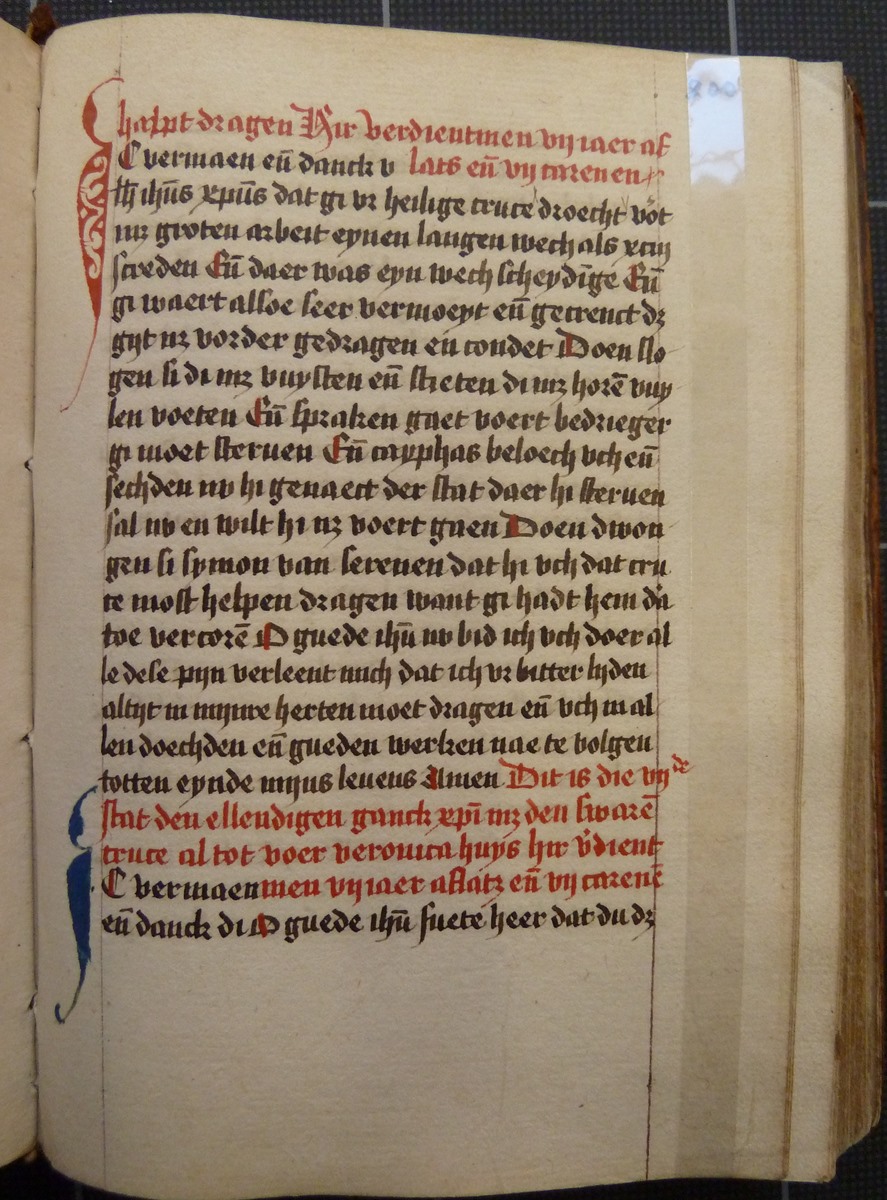 halpt dragen Hir verdientmen vij iaer af
JC vermaen eñ danck v lats eñ vij carenen
ħ iħus xp̄us dat gi vr heilige cruce droecht vōt
mz groten arbeit eynen langen wech als xciij
screden Eñ daer was eyn wech scheydīge Eñ
gi waert alsoe seer vermoeyt eñ gecrenct dz
gijt nz vorder gedragen en condet Doen slo
gen si di mz vuysten eñ stieten di mz horē vuy
len voeten Eñ spraken gaet voert bedrieger
gi moet steruen Eñ cayphas beloech vch eñ
sechden nv hi genaect der stat daer hi steruen
sal nv en wilt hi nz voert gaen Doen dwon
gen si symon van serenen dat hi vch dat cru
ce most helpen dragen want gi hadt hem da
toe vercorē O guede iħu nv bid ich vch doer al
le dese pijn verleent mich dat ich vr bitter lijden
altijt in mijnre herten moet dragen eñ vch in al
len doechden eñ gueden werken nae te volgen
totten eynde mijns leuens Amen Dit is die vijde
stat den ellendigen ganck xp̄i mz den swarē
cruce al tot voer veronica huys hir v̄dient
JC vermaen men vij iaer aflatz eñ vij carenē
eñ danck di O guede iħu suete heer dat du dz